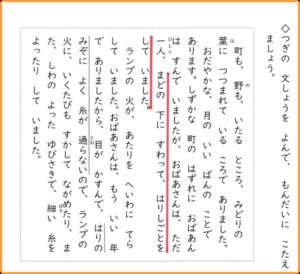 ◇つぎの 文しょうを よんで、もんだいに こたえ
ましょう。
町も、野も、いたる ところ、みどりの
葉に つつまれて いる ころで ありました。
おだやかな、月の いい ばんの ことで
あります。しずかな 町の はずれに おばあさん
は すんで いましたが、おばあさんは、ただ
一人、まどの 下に すわって、はりしごとを
して いました。
ランプの 火が、あたりを へいわに てら
して いました。おばあさんは、もう いい 年
で ありましたから、目が かすんで、はりの
みぞに よく 糸が 通らないので、ランプの
火に、いくたびも すかして ながめたり、ま
た、しわの よった ゆびさきで、細い 糸を
よったり して いました。